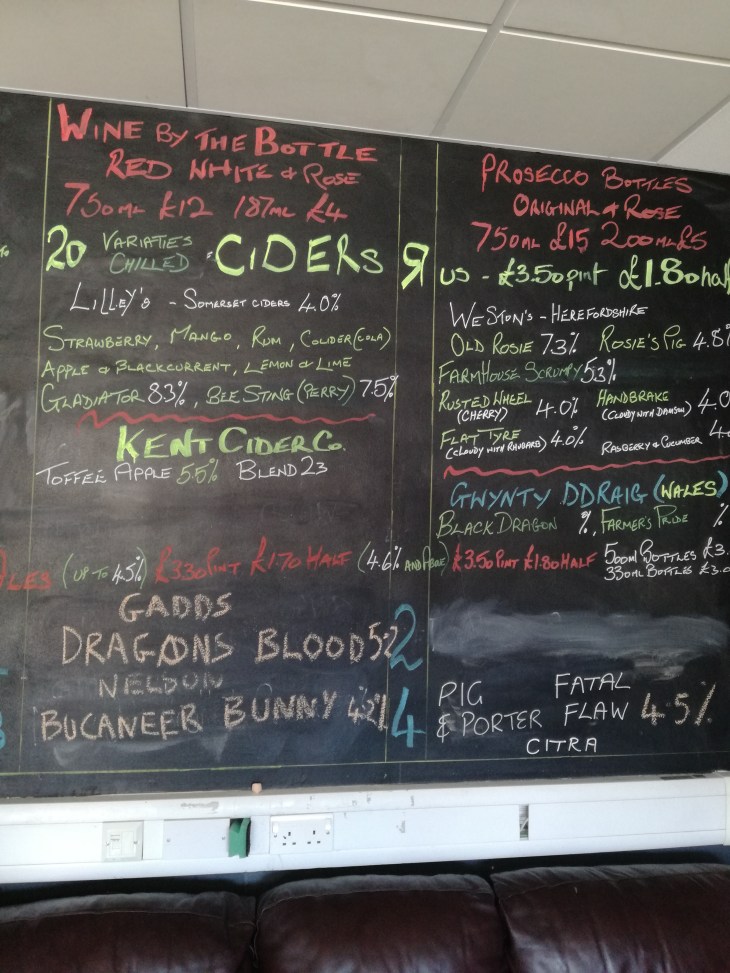 WINE BY THE BOTTLE
RED WHITE & ROSE
750ML £12 187ML £4
PROSECCO BOTTLES
ORIGINAL & ROSE
750ML £15 200ML £5
20 VARIATIES CHILLED = CIDERS R US - £3.50 PINT £1.80 half
LILLEY'S - SOMERSET CIDERS 4.0%
STRAWBERRY, MANGO, RUM, COLIDER (COLA)
APPLE & BLACKCURRENT, LEMON & LIME
GLADIATOR 8.3%, BEE STING (PERRY) 7.5%
KENT CIDER CO.
TOFFEE APPLE 5.5% BLEND 23
WESTON'S - HEREFORDSHIRE
OLD ROSIE 7.3% ROSIE'S PIG 4.8%
FARMHOUSE SCRUMPY 5.3%
RUSTED WHEEL (CHERRY) 4.0% HANDBRAKE (CLOUDY WITH DAMSON) 4.0
FLAT TYRE (CLOUDY WITH RHUBARB) 4.0% RASBERRY & CUCUMBER 4.
GWYNTY DDRAIG (WALES)
BLACK DRAGON %, FARMER'S PRIDE %
ALES (UP TO 4.5%) £3.30 PINT £1.70 HALF (4.6% AND ABOVE) £3.50 PINT £1.80 HALF
500ML BOTTLES £3.
330ML BOTTLES £3.0
GADDS
DRAGONS BLOOD 5.2
NELDON
BUCANEER BUNNY 4.2%
2
4
PIG & PORTER
FATAL FLAW 4.5%
CITRA